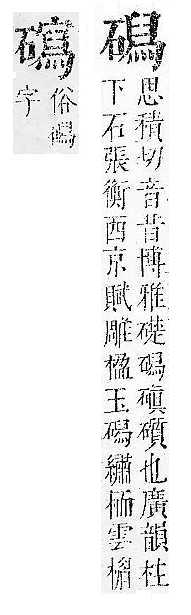 磶
思積切音昔博雅礎磶磌礩也廣韻柱
下石張衡西京賦雕楹玉磶繡栭雲楣
磶
俗磶
字